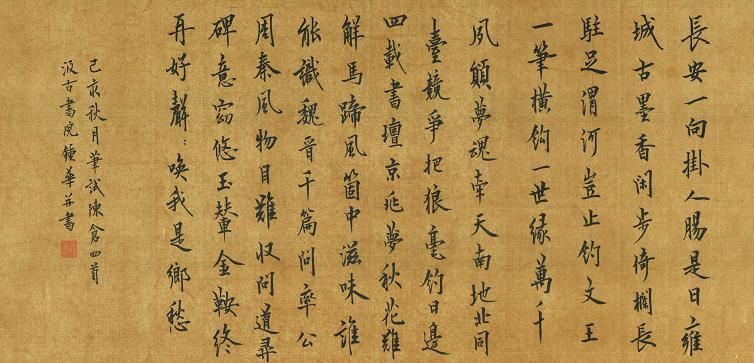 長安一向掛人腸是日雍
城古墨香闲步倚欄長
駐足渭河豈止釣文王
一筆橫鈎一世緣萬千
夙願夢魂牽天南地北同
臺競爭把狼毫釣日邊
四載書壇京兆夢秋花雖
鮮馬蹄風箇中滋味誰
能識魏晉千篇問率公
周秦風物目難収問道尋
碑意窈悠玉輦金鞍終
再好聲:喚我是鄉愁
己亥秋月筆試陳倉四首
汲古書院鍾華并書